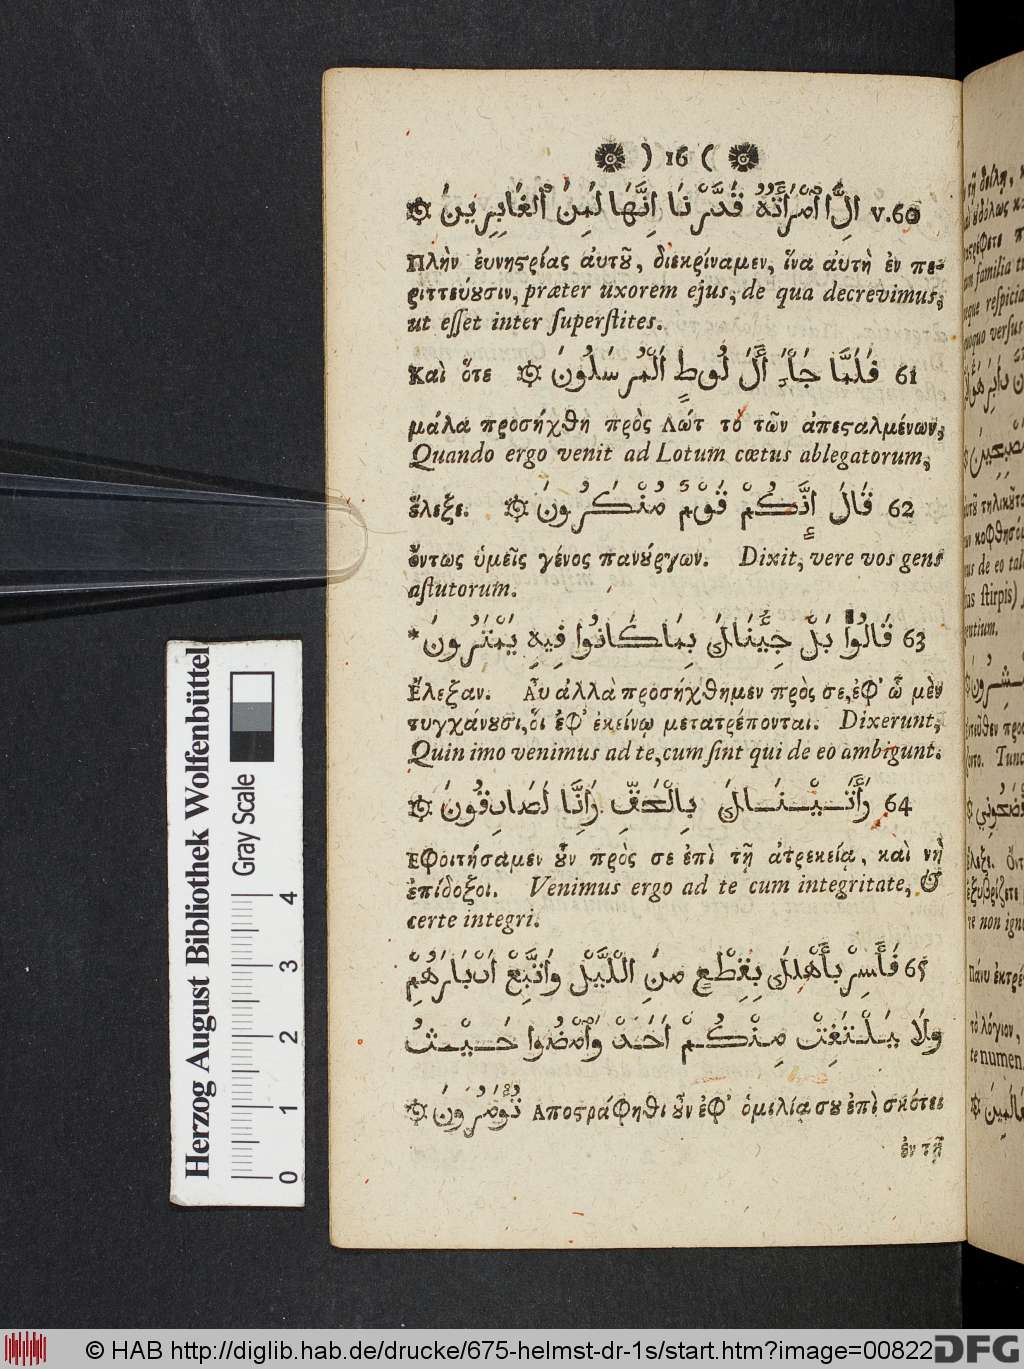 ) 16 (
v.60 اِلَّا اَمْرَأَتَهُ قَدَّرْنَا اِنَّهَا لَمِنَ اَلْغَابِرِينَ
Πλὴν ἐυνητρίας ἀυτοῦ, διεκρίναμεν, ἵνα ἀυτὴ ἐν πε-
ριττεύουσιν, præter uxorem ejus, de qua decrevimus,
ut esset inter superstites.
61 فَلَمَّا جَاءَ أَلَ لُوطٍ اَلْمُرسَلُونَ Καὶ ὅτε
μάλα προσήχθη πρὸς Λώτ τὸ τῶν ἀπεσταλμένων,
Quando ergo venit ad Lotum cœtus ablegatorum,
62 قَالَ إِنَّكُمْ قَوْمٌ مُنْكَرُونَ ἔλεξε.
ὄντως ὑμεῖς γένος πανούργων. Dixit, vere vos gens
astutorum.
63 قَالُوا بَلْ جِئنَاكَ بِمَا كَانُوا فِيهِ يَمْتَرُونَ *
Ἔλεξαν. Ἀυ ἀλλὰ προσήχθημεν πρὸς σε, ἐφ' ᾧ μὲν
τυγχάνουσι, ὁι ἐφ' ἐκείνῳ μετατρέπονται. Dixerunt,
Quin imo venimus ad te, cum sint qui de eo ambigunt.
64 وَأَتَيْنَاكَ بِالْحَقِّ وَإِنَّا لَصَادِقُونَ
Ἐφοιτήσαμεν οὖν πρὸς σε ἐπὶ τῇ ἀτρεκείᾳ, καὶ νὴ
ἐπίδοξοι. Venimus ergo ad te cum integritate, &
certe integri.
65 فَأَسِرْ بِأَهْلِكَ بِقِطْعٍ مِنَ الْلَيْلِ وَاَتَّبِعْ اَدْبَارَهُمْ
وَلَا يَلْتَفِتْ مِنْكُمْ اَحَدٌ وَاَمْضُوا حَيْثُ
تُؤمَرُونَ Ἀποστράφηθι οὖν ἐφ' ὁμιλίᾳ σου ἐπὶ σκότει
ἐν τῇ
Herzog August Bibliothek Wolfenbüttel
Gray Scale
0 1 2 3 4
© HAB http://diglib.hab.de/drucke/675-helmst-dr-1s/start.htm?image=00822
DFG